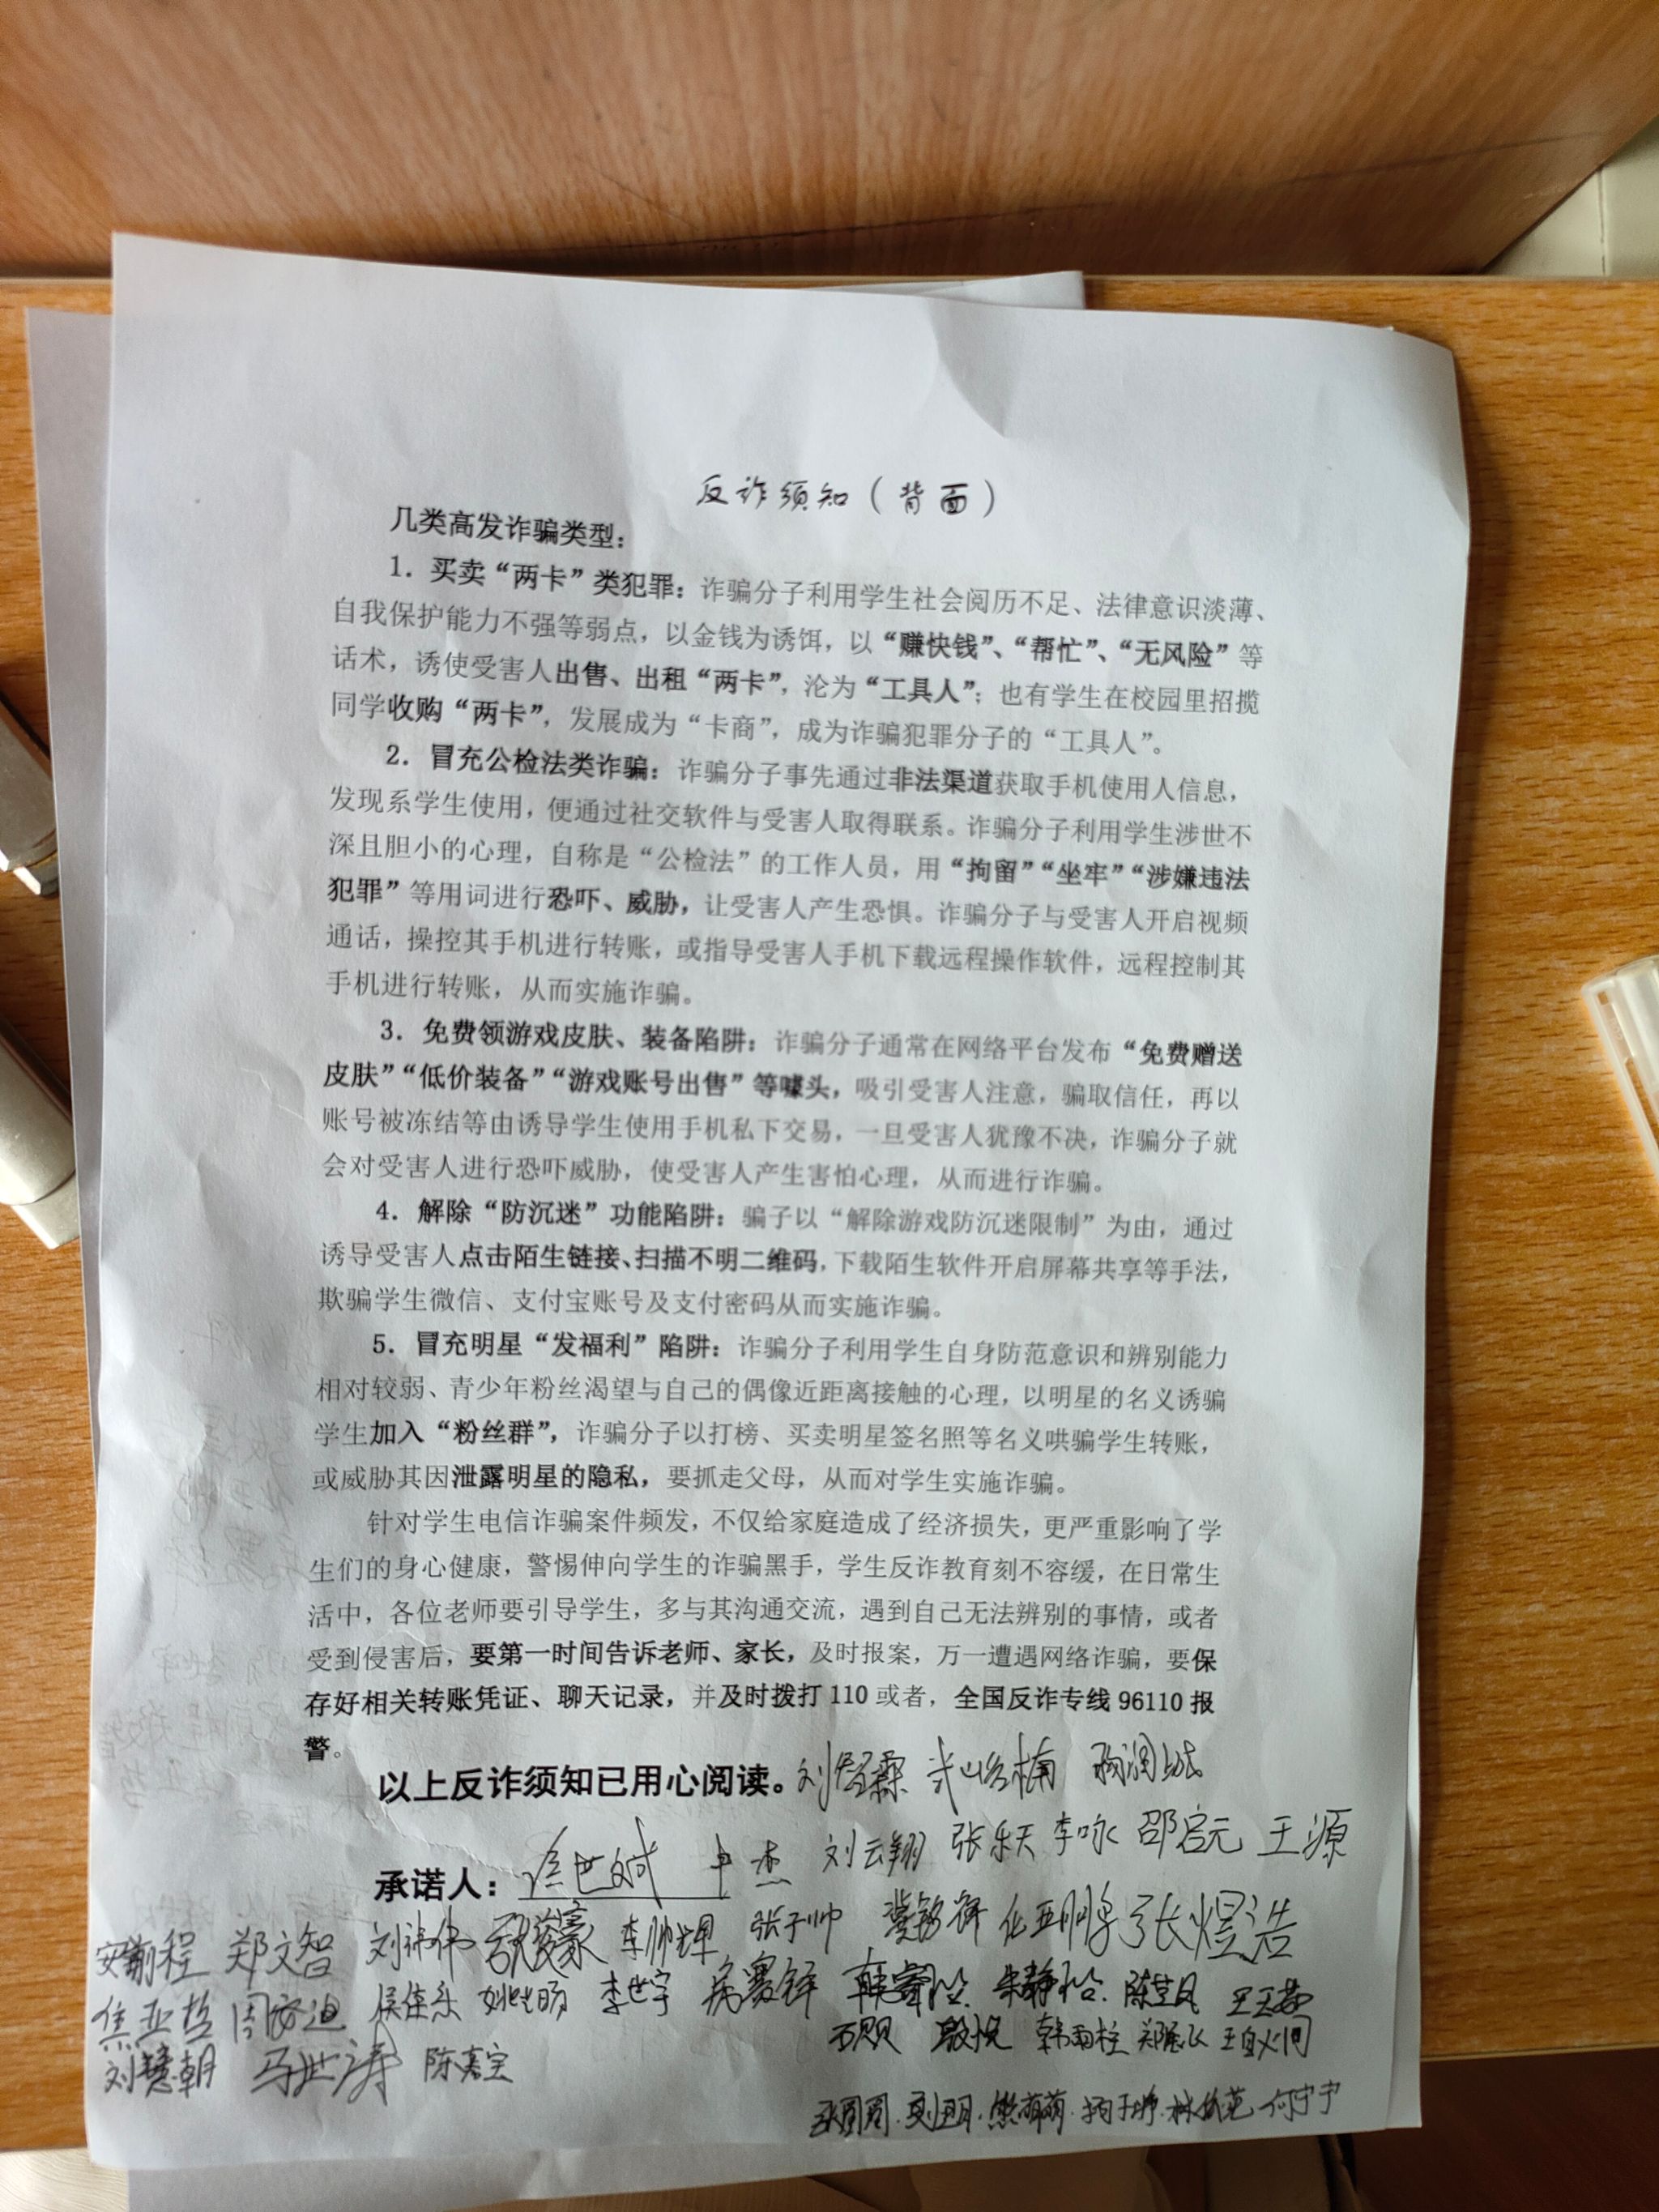 反诈须知（背面）
几类高发诈骗类型：
1. 买卖“两卡”类犯罪：诈骗分子利用学生社会阅历不足、法律意识淡薄、
自我保护能力不强等弱点，以金钱为诱饵，以“赚快钱”、“帮忙”、“无风险”等
话术，诱使受害人出售、出租“两卡”，沦为“工具人”；也有学生在校园里招揽
同学收购“两卡”，发展成为“卡商”，成为诈骗犯罪分子的“工具人”。
2. 冒充公检法类诈骗：诈骗分子事先通过非法渠道获取手机使用人信息，
发现系学生使用，便通过社交软件与受害人取得联系。诈骗分子利用学生涉世不
深且胆小的心理，自称是“公检法”的工作人员，用“拘留”“坐牢”“涉嫌违法
犯罪”等用词进行恐吓、威胁，让受害人产生恐惧。诈骗分子与受害人开启视频
通话，操控其手机进行转账，或指导受害人手机下载远程操作软件，远程控制其
手机进行转账，从而实施诈骗。
3. 免费领游戏皮肤、装备陷阱：诈骗分子通常在网络平台发布“免费赠送
皮肤”“低价装备”“游戏账号出售”等噱头，吸引受害人注意，骗取信任，再以
账号被冻结等由诱导学生使用手机私下交易，一旦受害人犹豫不决，诈骗分子就
会对受害人进行恐吓威胁，使受害人产生害怕心理，从而进行诈骗。
4. 解除“防沉迷”功能陷阱：骗子以“解除游戏防沉迷限制”为由，通过
诱导受害人点击陌生链接、扫描不明二维码，下载陌生软件开启屏幕共享等手法，
欺骗学生微信、支付宝账号及支付密码从而实施诈骗。
5. 冒充明星“发福利”陷阱：诈骗分子利用学生自身防范意识和辨别能力
相对较弱、青少年粉丝渴望与自己的偶像近距离接触的心理，以明星的名义诱骗
学生加入“粉丝群”，诈骗分子以打榜、买卖明星签名照等名义哄骗学生转账，
或威胁其因泄露明星的隐私，要抓走父母，从而对学生实施诈骗。
针对学生电信诈骗案件频发，不仅给家庭造成了经济损失，更严重影响了学
生们的身心健康，警惕伸向学生的诈骗黑手，学生反诈教育刻不容缓，在日常生
活中，各位老师要引导学生，多与其沟通交流，遇到自己无法辨别的事情，或者
受到侵害后，要第一时间告诉老师、家长，及时报案，万一遭遇网络诈骗，要保
存好相关转账凭证、聊天记录，并及时拨打 110 或者，全国反诈专线 96110 报
警。
以上反诈须知已用心阅读。
承诺人： 刘云翔 张乐天 李咏 邵启元 王源
郑文智 李帅辉 张子帅 张煜浩
焦亚哲 李世宇
韩雨柱
刘慧朝 马世涛 陈嘉宝
何宁宁